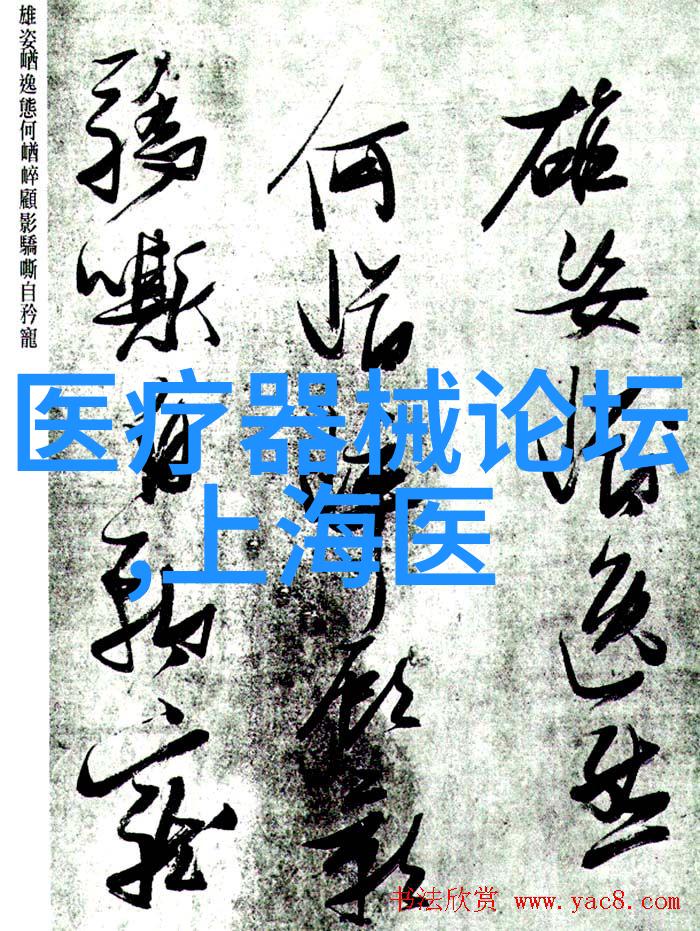 雄姿崷逸態
何崷崪顧影
驕嘶自矜寵
雄姿崷逸態何崷崪顧影驕嘶自矜寵
医疗器械论坛
,上海医
书法欣赏 www.yac8.com